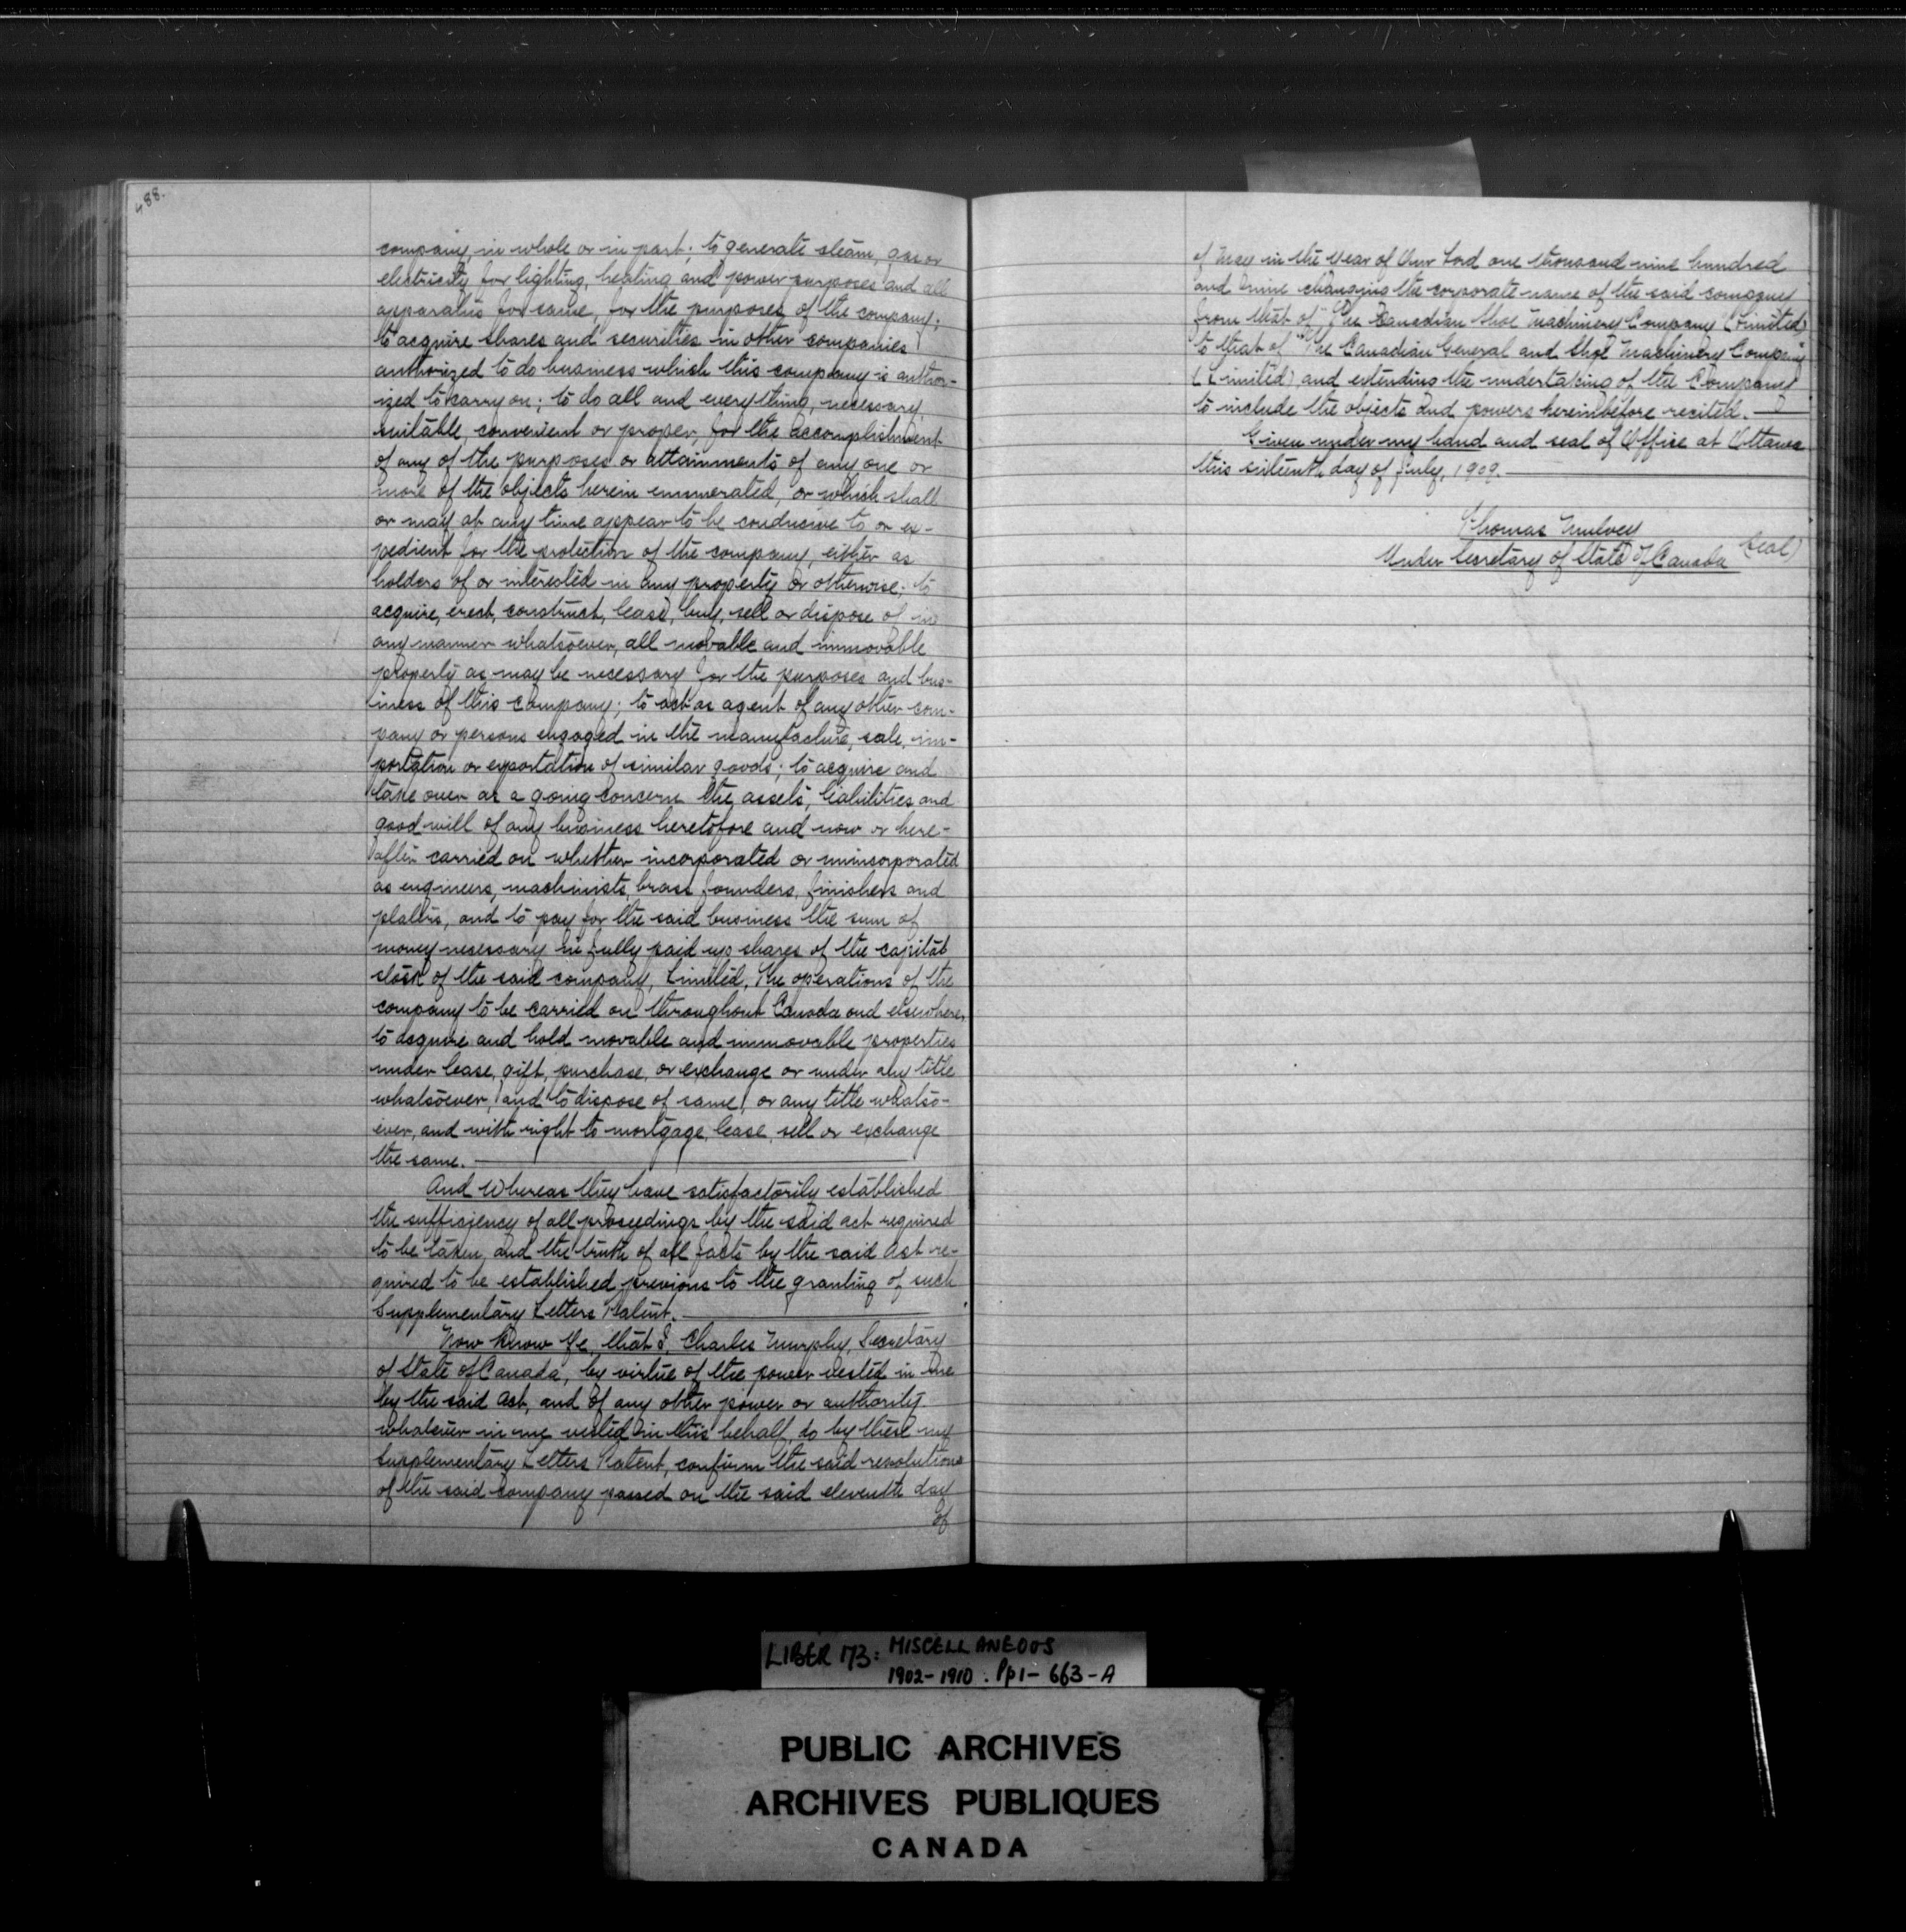 488.
company, in whole or in part; to generate steam, gas or
electricity for lighting, heating and power purposes and all
apparatus for same, for the purposes of the company;
to acquire shares and securities in other companies
authorized to do business which this company is author-
ized to carry on; to do all and everything, necessary,
suitable, convenient or proper, for the accomplishment
of any of the purposes or attainments of any one or
more of the objects herein enumerated, or which shall
or may at any time appear to be conducive to or ex-
pedient for the protection of the company, either as
holders of or interested in any property or otherwise; to
acquire, erect, construct, lease, buy, sell or dispose of in
any manner whatsoever, all movable and immovable
property as may be necessary for the purposes and bus-
iness of this Company; to act as agent of any other com-
pany or persons engaged in the manufacture, sale, im-
portation or exportation of similar goods; to acquire and
take over as a going concern the assets, liabilities and
good will of any business heretofore and now or here-
after carried on whether incorporated or unincorporated
as engineers, machinists, brass founders, finishers and
platers, and to pay for the said business the sum of
money necessary in fully paid up shares of the capital
stock of the said company, Limited, The operations of the
company to be carried on throughout Canada and elsewhere,
to acquire and hold movable and immovable properties
under lease, gift, purchase, or exchange or under any title
whatsoever, and to dispose of same, or any title whatso-
ever, and with right to mortgage, lease, sell or exchange
the same.
And Whereas they have satisfactorily established
the sufficiency of all proceedings by the said act required
to be taken, and the truth of all facts by the said Act re-
quired to be established previous to the granting of such
Supplementary Letters Patent.
Now Know Ye, that I, Charles Murphy, Secretary
of State of Canada, by virtue of the power vested in me
by the said Act, and of any other power or authority
whatever in me vested in this behalf, do by these my
Supplementary Letters Patent, confirm the said resolution
of the said Company passed on the said eleventh day
of
of May in the year of Our Lord one thousand nine hundred
and nine changing the corporate name of the said company
from that of "The Canadian Shoe Machinery Company (Limited)
to that of "The Canadian General and Shoe Machinery Company
(Limited) and extending the undertaking of the Company
to include the objects and powers hereinbefore recited.
Given under my hand and seal of Office at Ottawa
this sixteenth day of July, 1909.
Thomas Mulvey
Under Secretary of State of Canada (Seal)
LIBER 173: MISCELLANEOUS
1902-1910. Pp1-663-A
PUBLIC ARCHIVES
ARCHIVES PUBLIQUES
CANADA